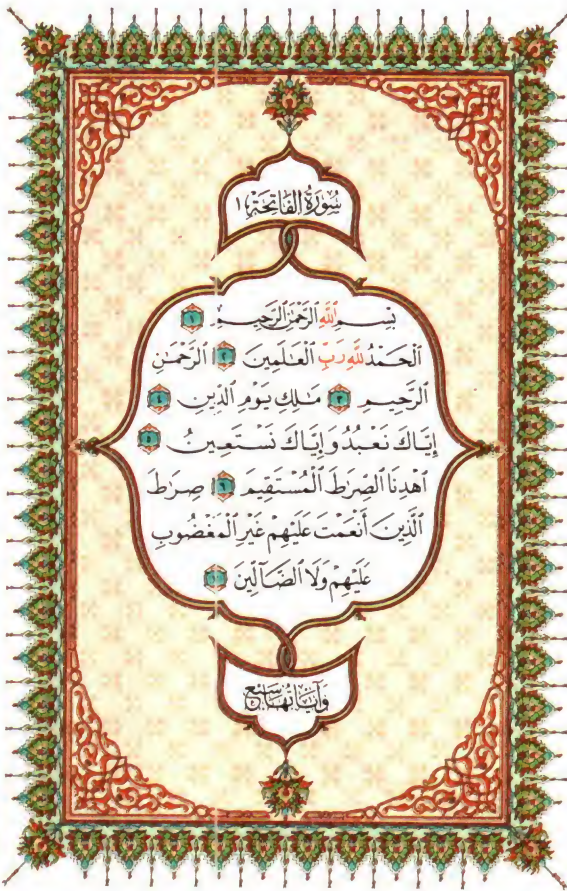 سُورَةُ الفَاتِحَةِ ١
بِسْمِ ٱللَّهِ ٱلرَّحْمَٰنِ ٱلرَّحِيمِ ١
ٱلْحَمْدُ لِلَّهِ رَبِّ ٱلْعَٰلَمِينَ ٢ ٱلرَّحْمَٰنِ
ٱلرَّحِيمِ ٣ مَٰلِكِ يَوْمِ ٱلدِّينِ ٤
إِيَّاكَ نَعْبُدُ وَإِيَّاكَ نَسْتَعِينُ ٥
ٱهْدِنَا ٱلصِّرَٰطَ ٱلْمُسْتَقِيمَ ٦ صِرَٰطَ
ٱلَّذِينَ أَنْعَمْتَ عَلَيْهِمْ غَيْرِ ٱلْمَغْضُوبِ
عَلَيْهِمْ وَلَا ٱلضَّآلِّينَ
وَآيَاتُهَا سَبْعٌ